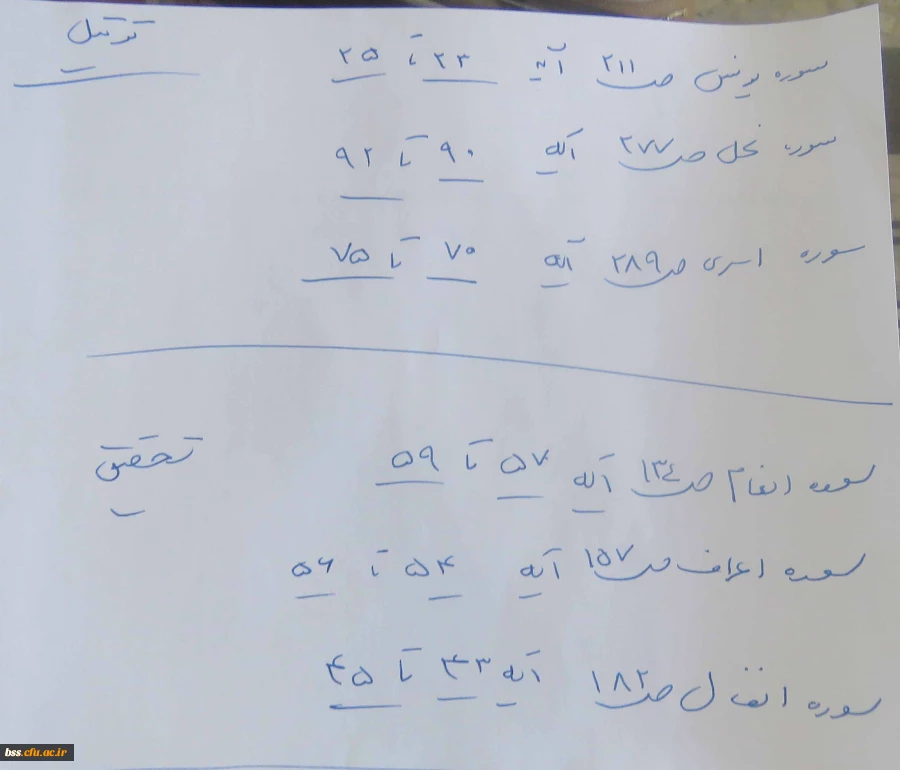 ترتیل
سوره یونس ص ۲۱۱ آیه ۲۳ تا ۲۵
سوره نحل ص ۲۷۷ آیه ۹۰ تا ۹۲
سوره اسری ص ۲۸۹ آیه ۷۰ تا ۷۵
تحقیق
سوره انعام ص ۱۳٤ آیه ۵۷ تا ۵۹
سوره اعراف ص ۱۵۷ آیه ۵۴ تا ۵۶
سوره انفال ص ۱۸۲ آیه ۴۳ تا ۴۵
bss.cfu.ac.ir